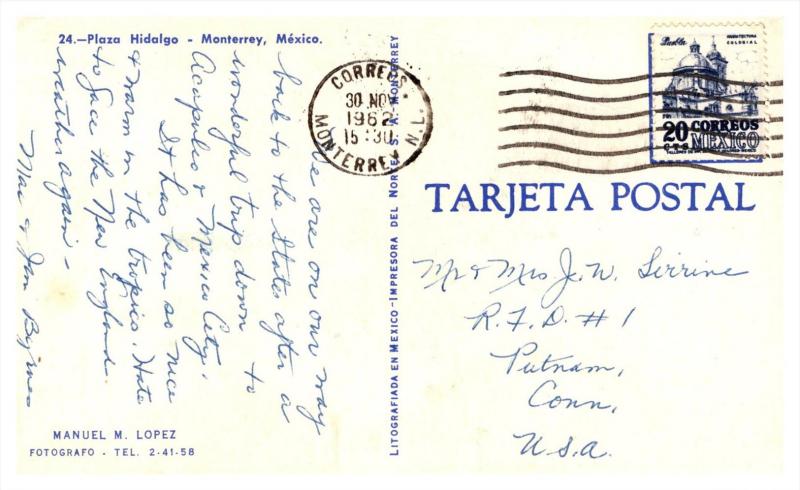 24.—Plaza Hidalgo - Monterrey, México.
We are on our way
back to the States after a
wonderful trip down to
Acapulco & Mexico City.
It has been so nice
& warm in the tropics. Hate
to face the New England
weather again —
Mae & Jim Byrnes
MANUEL M. LOPEZ
FOTOGRAFO - TEL. 2-41-58
LITOGRAFIADA EN MEXICO-IMPRESORA DEL NORTE S. A.-MONTERREY
CORREOS
30 NOV
1962
15:30
MONTERREY N.L.
Puebla
ARQUITECTURA
COLONIAL
20 CORREOS
CTS MEXICO
TARJETA POSTAL
Mr & Mrs J. W. Sirrine
R.F.D. #1
Putnam,
Conn,
U.S.A.